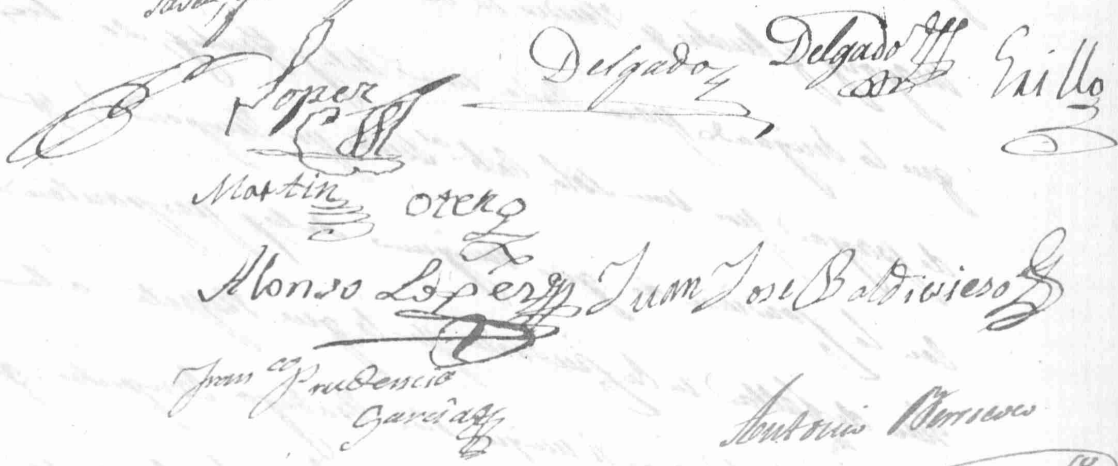 Lopez Delgado Delgado Grillo
Martin Otero
Alonso Lopez Juan Jose Baldivieso
Fran.co Prudencio
Garcia
Antonio